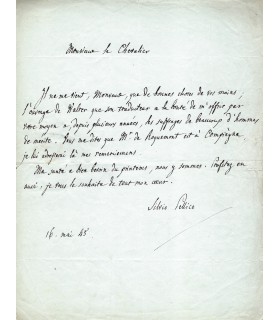 Monsieur le Chevalier
Il ne me vient, Monsieur, que de bonnes choses de vos mains;
l'ouvrage de Walter que son traducteur a la bonté de m'offrir par
votre moyen a, depuis plusieurs années, les suffrages de beaucoup d'hommes
de mérite. Vous me dites que Mr de est à Compiègne
je lui adresserai là mes remerciemens.
Ma santé a bien besoin du printems, nous y sommes.
aussi, je vous le souhaite de tout mon cœur.
Silvio Pellico
16. mai 45